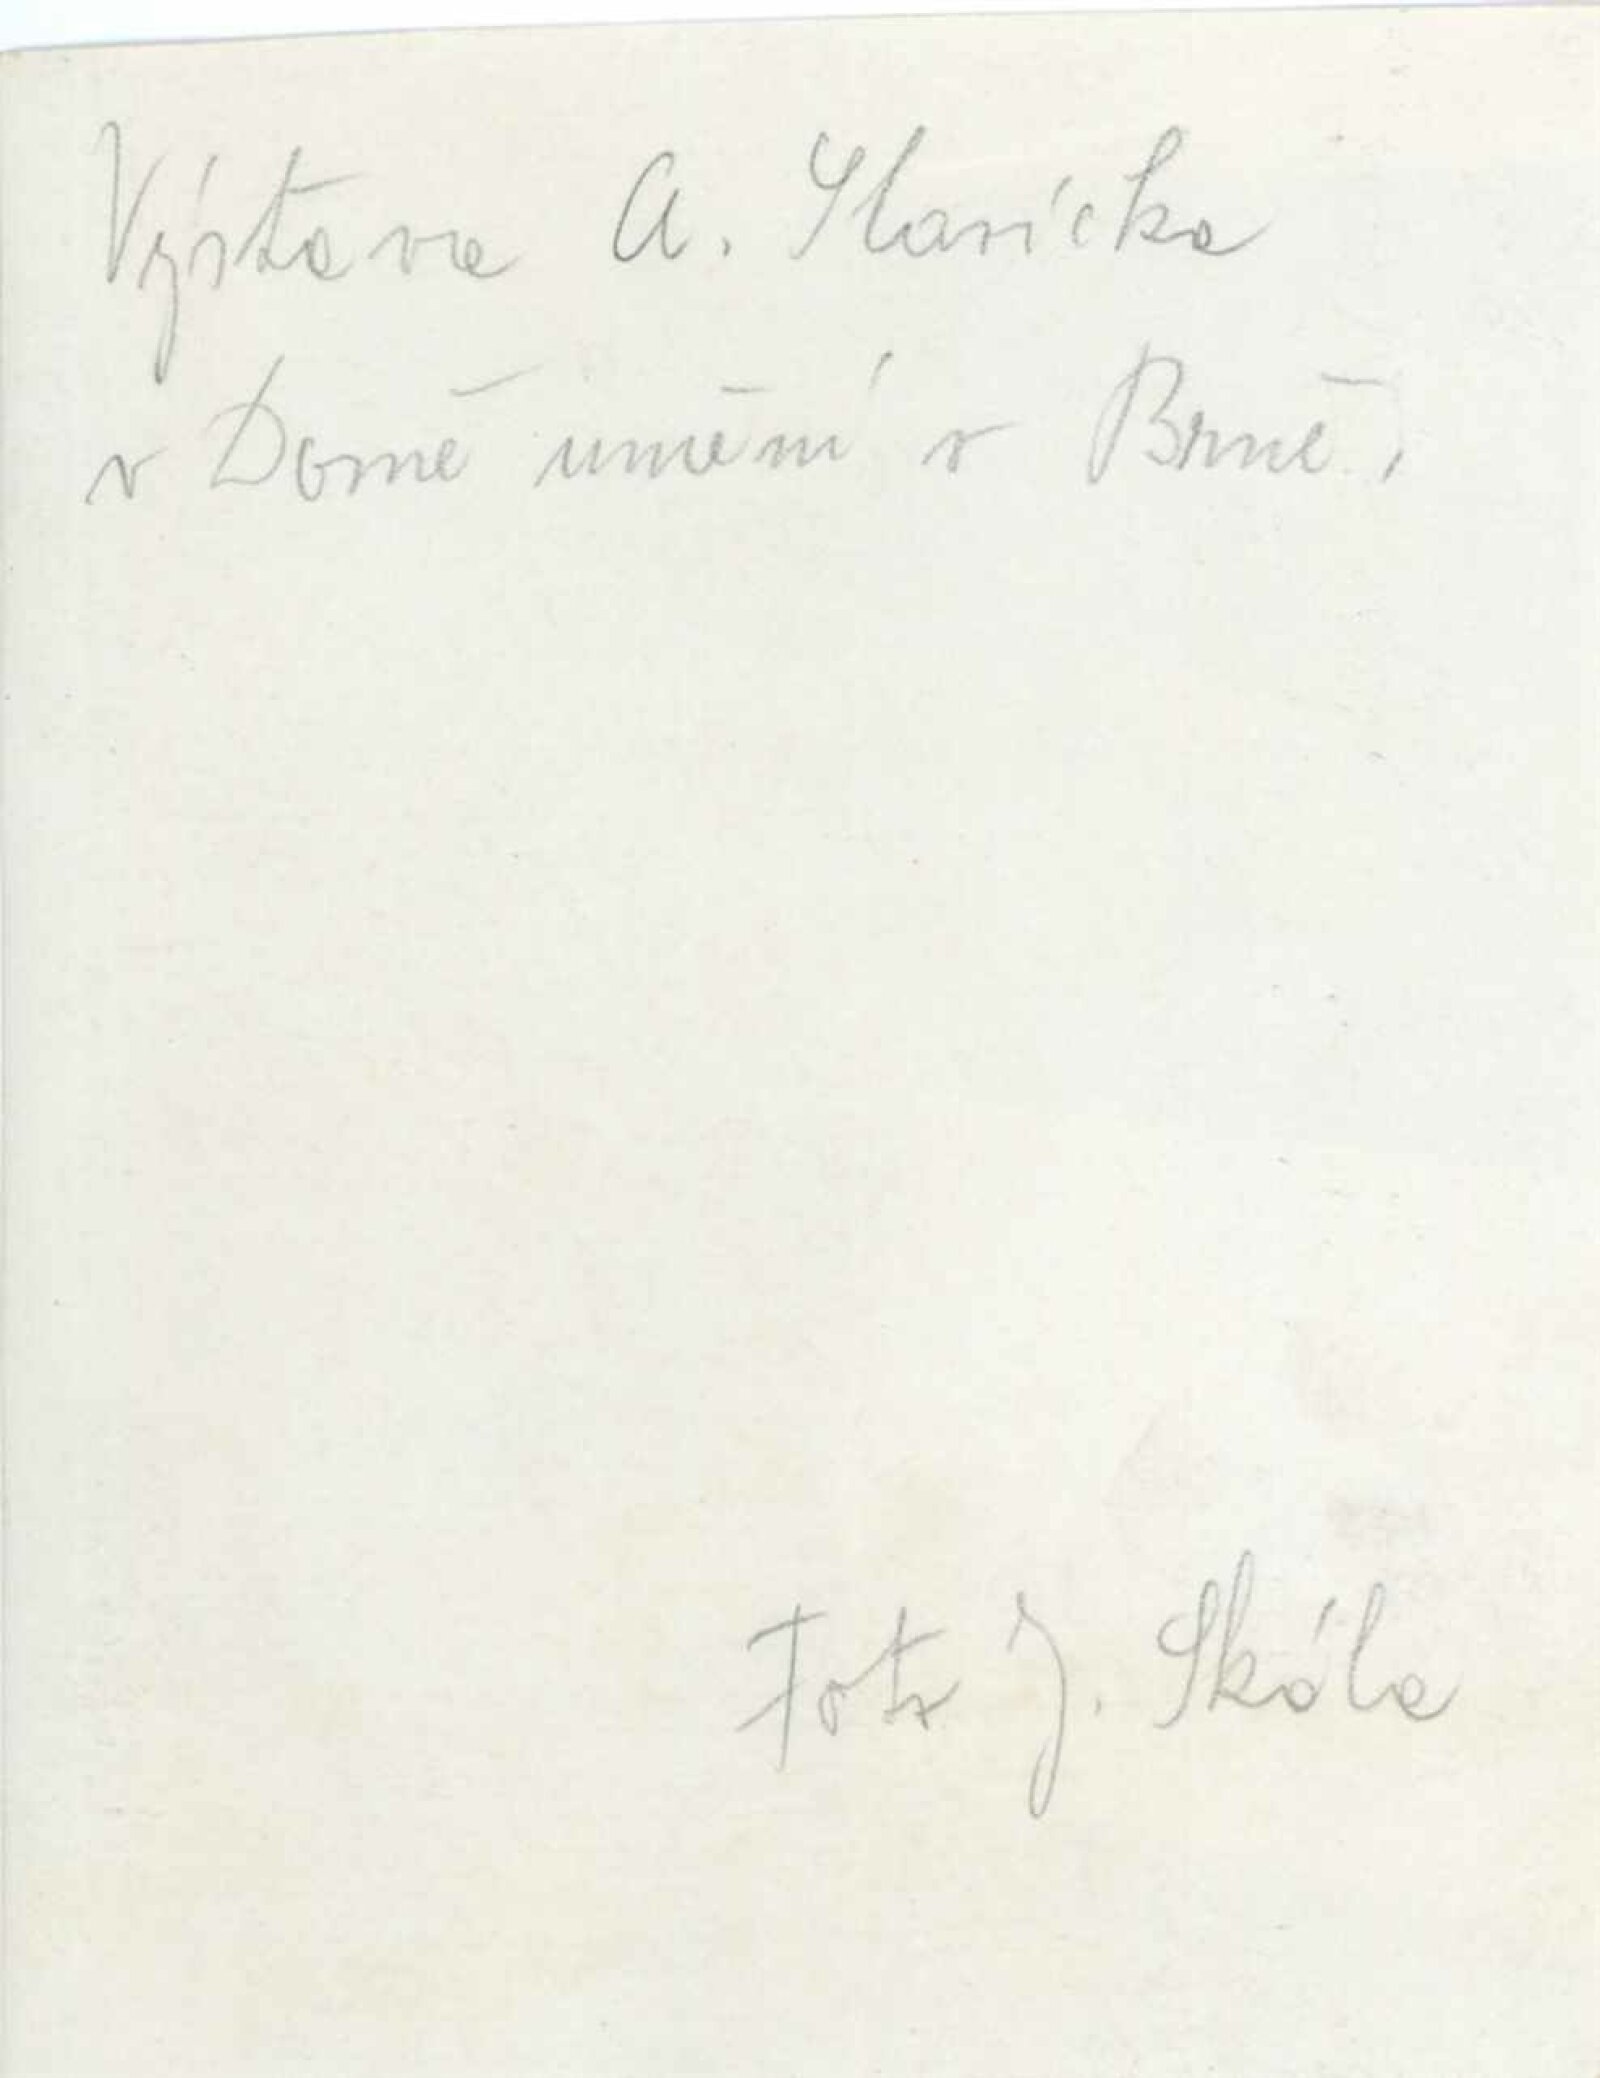 Výstava A. Slavíčka
v Domě umění v Brně.
Foto J. Skála